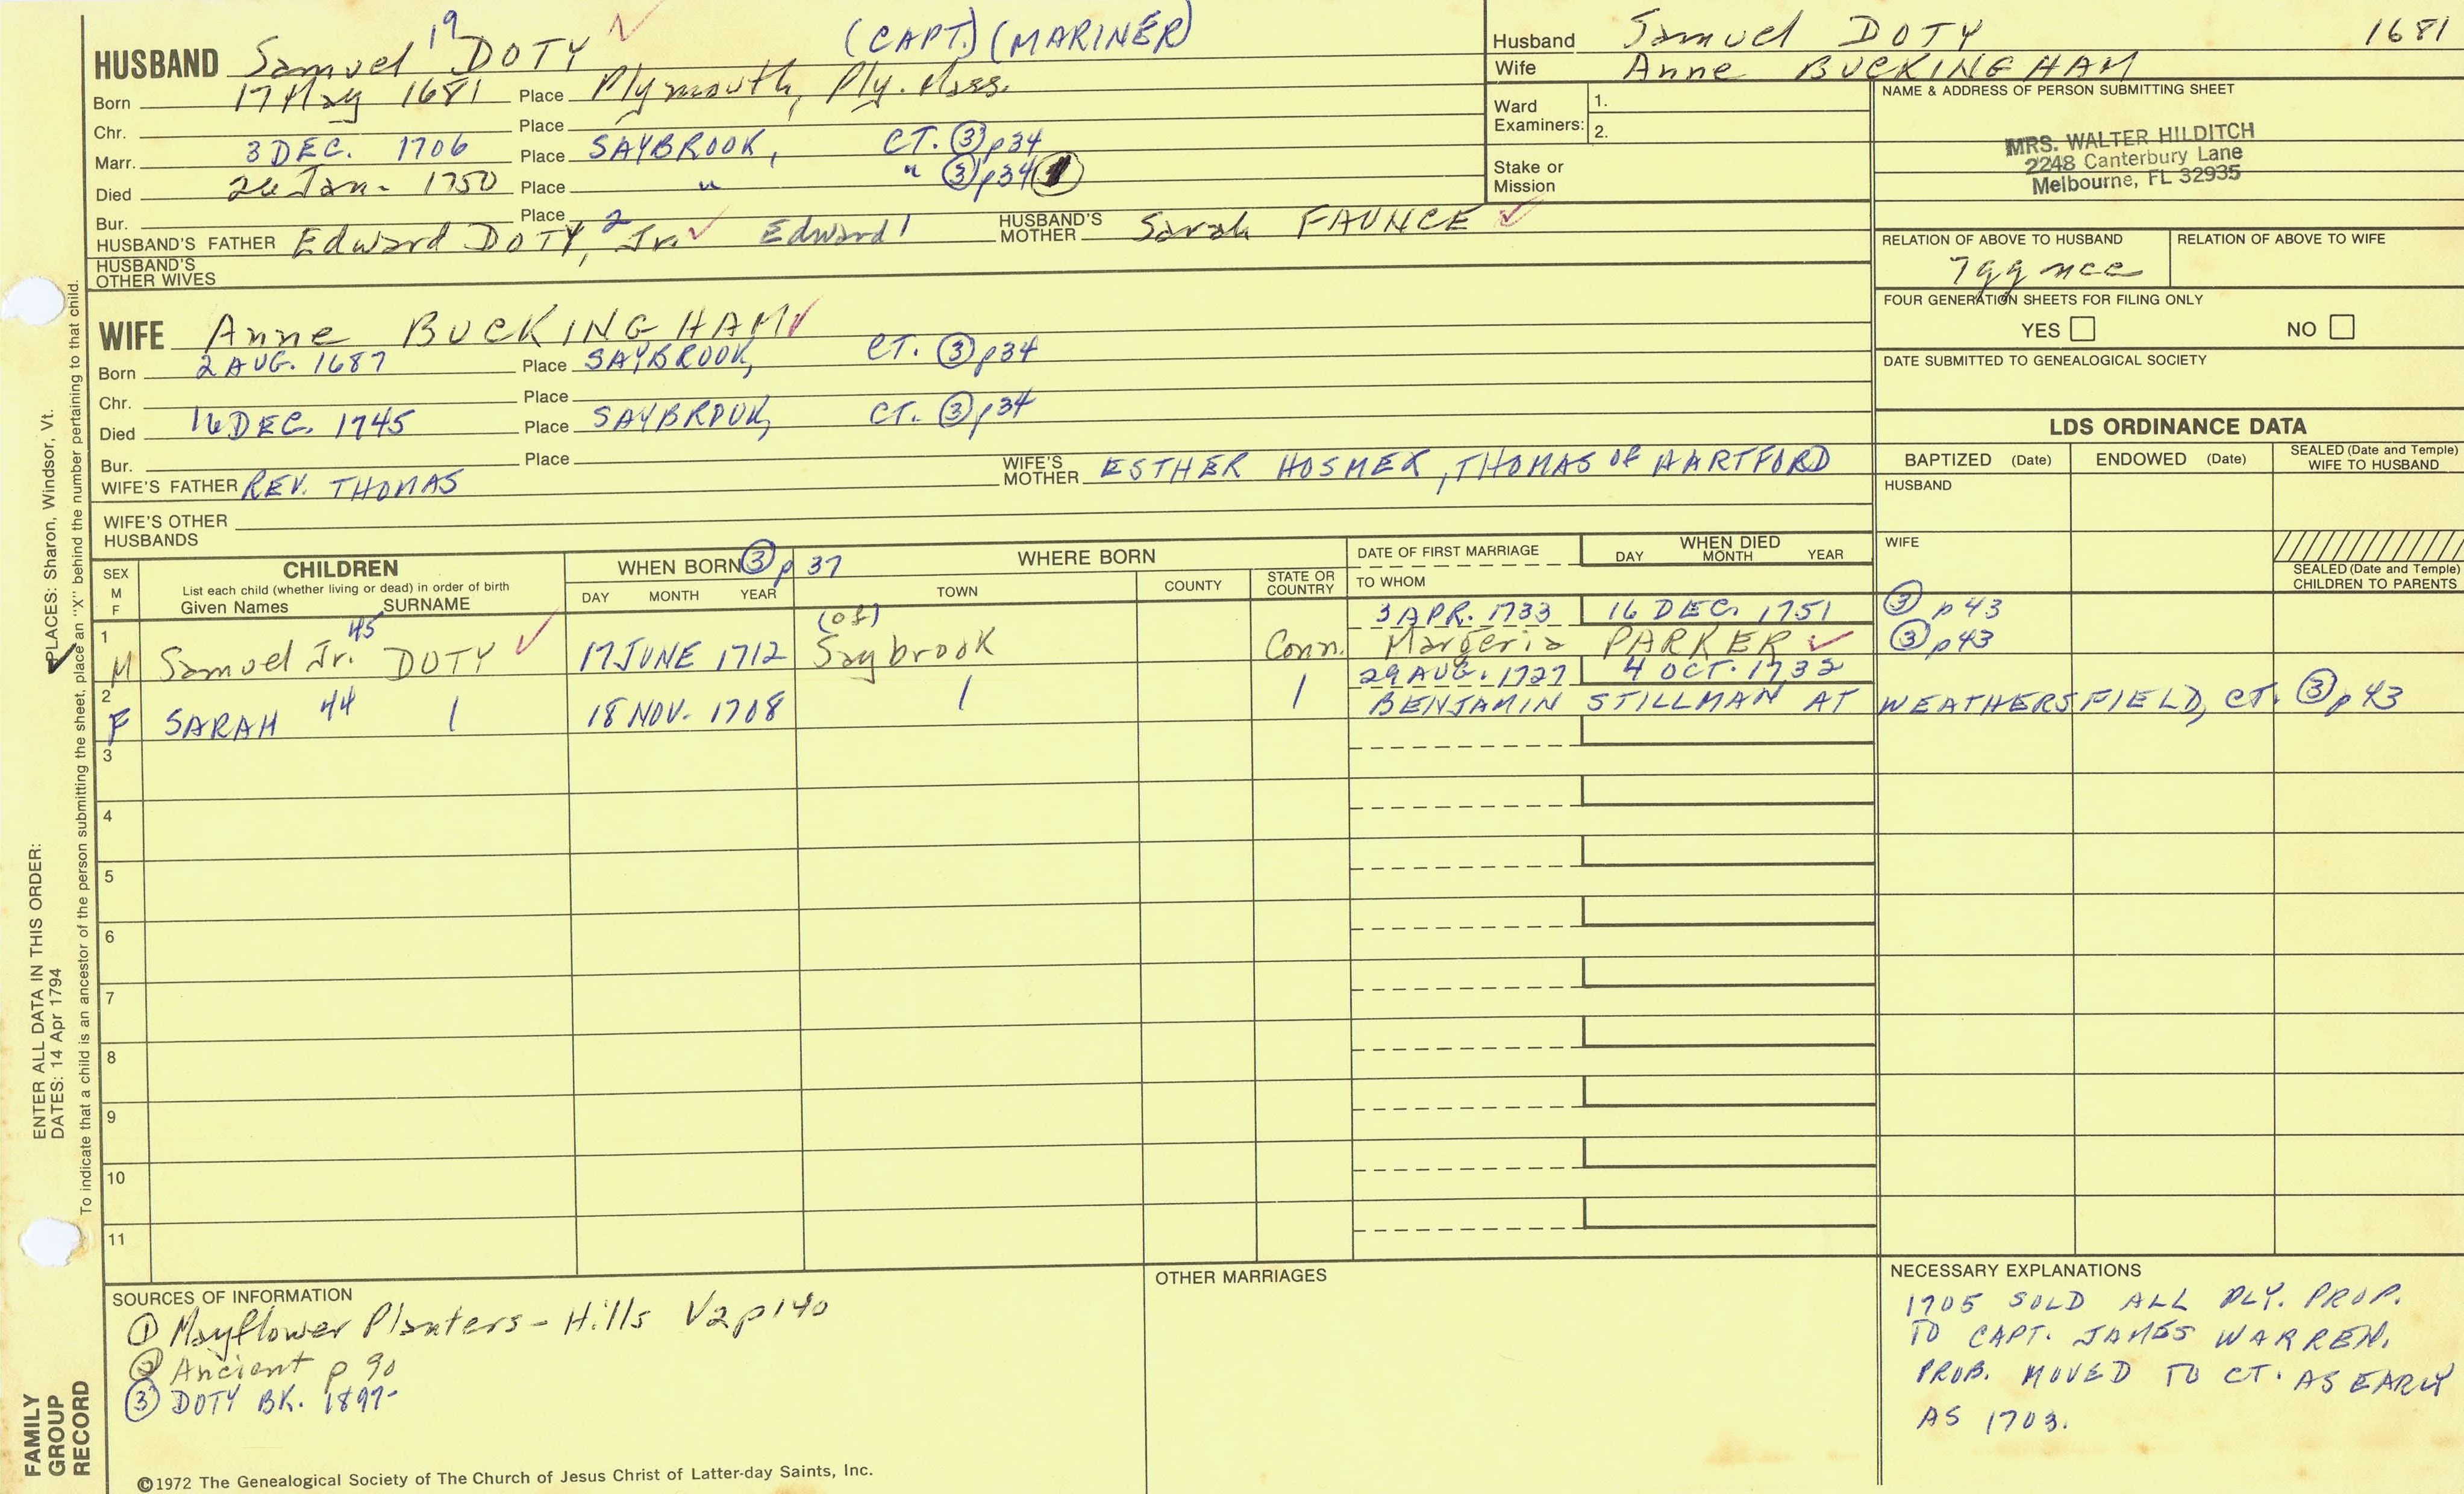 HUSBAND Samuel 19 DOTY ✓ (CAPT.) (MARINER)
Born 17 May 1681 Place Plymouth, Ply. Mass.
Chr. Place
Marr. 3 DEC. 1706 Place SAYBROOK, CT. ③ p34
Died 26 Jan. 1750 Place " " ③ p34
Bur. Place
HUSBAND'S FATHER Edward DOTY, 2 Jr. ✓ Edward 1 HUSBAND'S MOTHER Sarah FAUNCE ✓
HUSBAND'S OTHER WIVES
WIFE Anne BUCKINGHAM ✓
Born 2 AUG. 1687 Place SAYBROOK, CT. ③ p34
Chr. Place
Died 16 DEC. 1745 Place SAYBROOK, CT. ③ p34
Bur. Place
WIFE'S FATHER REV. THOMAS WIFE'S MOTHER ESTHER HOSMER, THOMAS OF HARTFORD
WIFE'S OTHER HUSBANDS
Husband Samuel DOTY 1681
Wife Anne BUCKINGHAM
Ward Examiners: 1.
2.
Stake or Mission
NAME & ADDRESS OF PERSON SUBMITTING SHEET
MRS. WALTER HILDITCH
2248 Canterbury Lane
Melbourne, FL 32935
RELATION OF ABOVE TO HUSBAND RELATION OF ABOVE TO WIFE
7gg nce
FOUR GENERATION SHEETS FOR FILING ONLY
YES NO
DATE SUBMITTED TO GENEALOGICAL SOCIETY
LDS ORDINANCE DATA
BAPTIZED (Date) ENDOWED (Date) SEALED (Date and Temple) WIFE TO HUSBAND
HUSBAND
WIFE
SEALED (Date and Temple) CHILDREN TO PARENTS
SEX M F
CHILDREN
List each child (whether living or dead) in order of birth
Given Names SURNAME
WHEN BORN ③ p 37
DAY MONTH YEAR
WHERE BORN
TOWN COUNTY STATE OR COUNTRY
DATE OF FIRST MARRIAGE
TO WHOM
WHEN DIED
DAY MONTH YEAR
(of) 3 APR. 1733 16 DEC. 1751 ③ p43
1 M Samuel Jr. 45 DOTY ✓ 17 JUNE 1712 Saybrook Conn. Margeria PARKER ✓ ③ p43
29 AUG. 1727 4 OCT. 1732
2 F SARAH 44 18 NOV. 1708 BENJAMIN STILLMAN AT WEATHERSFIELD, CT. ③ p43
3
4
5
6
7
8
9
10
11
SOURCES OF INFORMATION
① Mayflower Planters - Hills V2 p140
② Ancient p 90
③ DOTY BK. 1897-
OTHER MARRIAGES
NECESSARY EXPLANATIONS
1705 SOLD ALL PLY. PROP.
TO CAPT. JAMES WARREN.
PROB. MOVED TO CT. AS EARLY
AS 1703.
©1972 The Genealogical Society of The Church of Jesus Christ of Latter-day Saints, Inc.
FAMILY GROUP RECORD
ENTER ALL DATA IN THIS ORDER:
DATES: 14 Apr 1794
✓ PLACES: Sharon, Windsor, Vt.
To indicate that a child is an ancestor of the person submitting the sheet, place an "X" behind the number pertaining to that child.